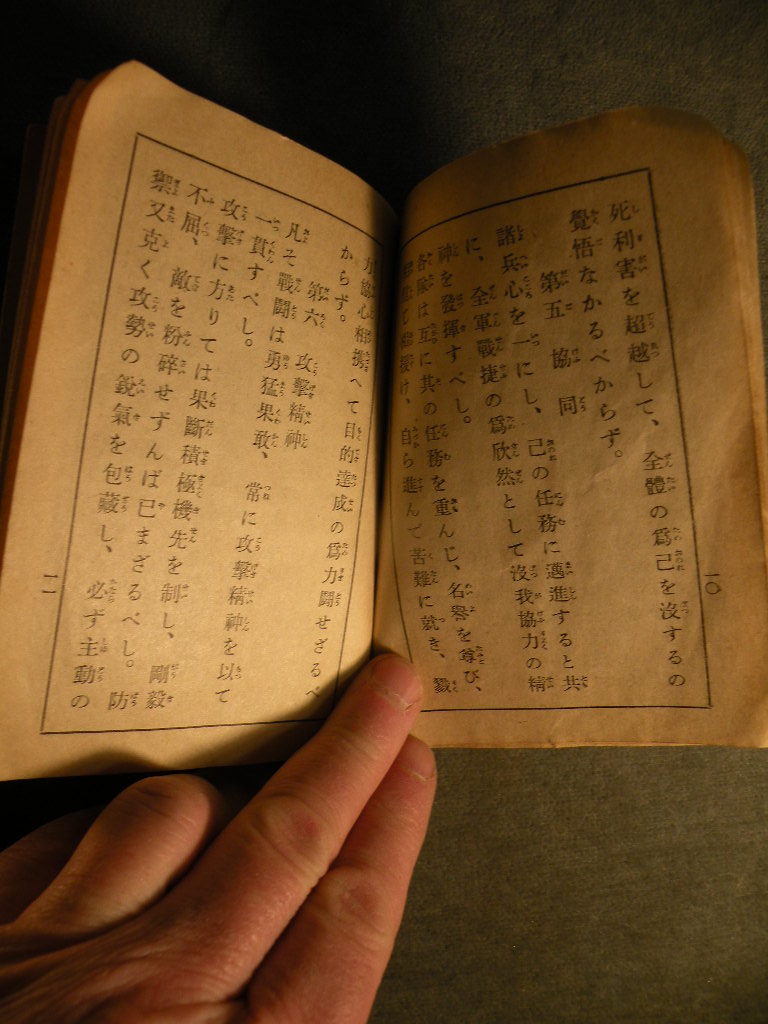 死利害を超越して、全體の爲己を沒するの
覺悟なかるべからず。
第五　協同
諸兵心を一にし、己の任務に邁進すると共
に、全軍戰捷の爲欣然として沒我協力の精
神を發揮すべし。
各隊は互に其の任務を重んじ、名譽を尊び、
相信じて相援け、自ら進んで苦難に就き、戮
一〇
力協心相携へて目的達成の爲力鬪せざるべ
からず。
第六　攻擊精神
凡そ戰鬪は勇猛果敢、常に攻擊精神を以て
一貫すべし。
攻擊に方りては果斷積極機先を制し、剛毅
不屈、敵を粉碎せずんば已まざるべし。防
禦又克く攻勢の銳氣を包藏し、必ず主動の
一一